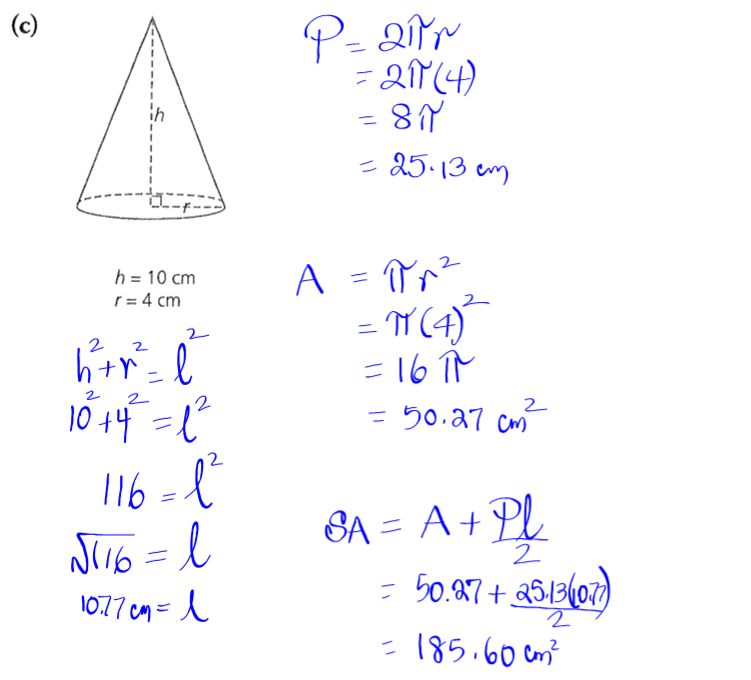 (c)
h
r
h = 10 cm
r = 4 cm
h² + r² = l²
10² + 4² = l²
116 = l²
√116 = l
10.77 cm = l
P = 2πr
= 2π(4)
= 8π
= 25.13 cm
A = πr²
= π(4)²
= 16π
= 50.27 cm²
SA = A + Pl/2
= 50.27 + 25.13(10.77)/2
= 185.60 cm²